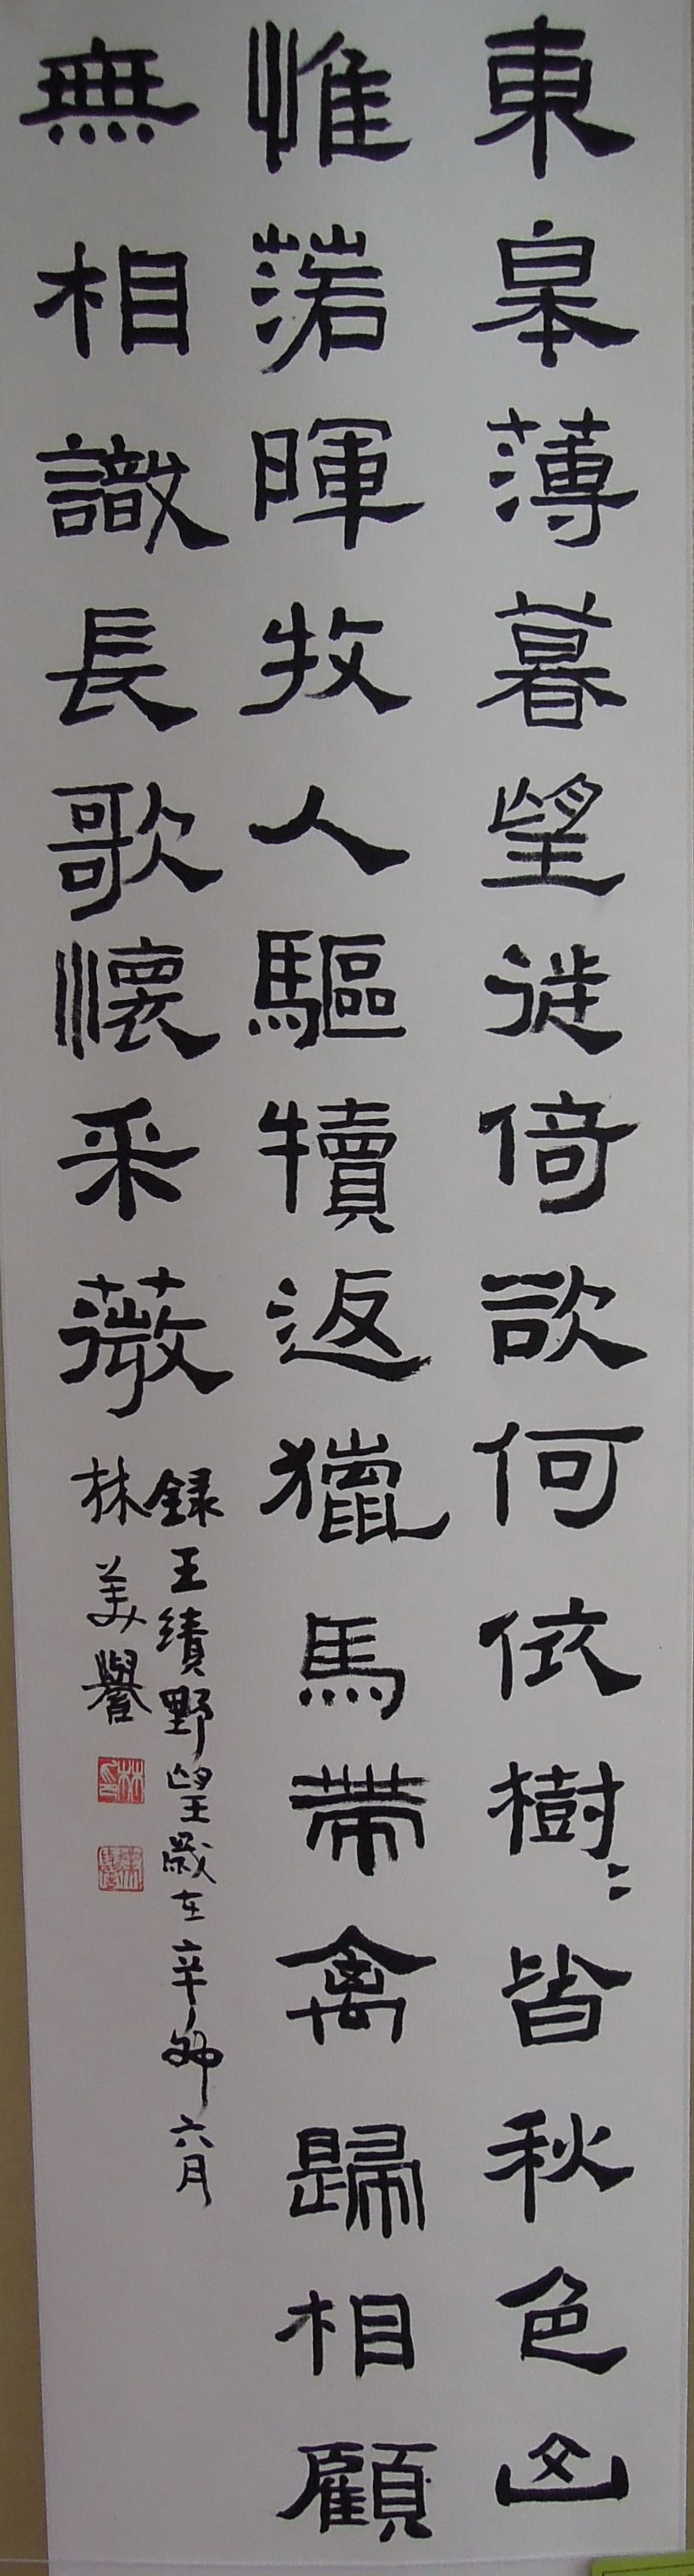 東皋薄暮望徙倚欲何依樹〻皆秋色山〻
惟落暉牧人驅犢返獵馬帶禽歸相顧
無相識長歌懷采薇
録王績野望歲在辛卯六月
林美譽